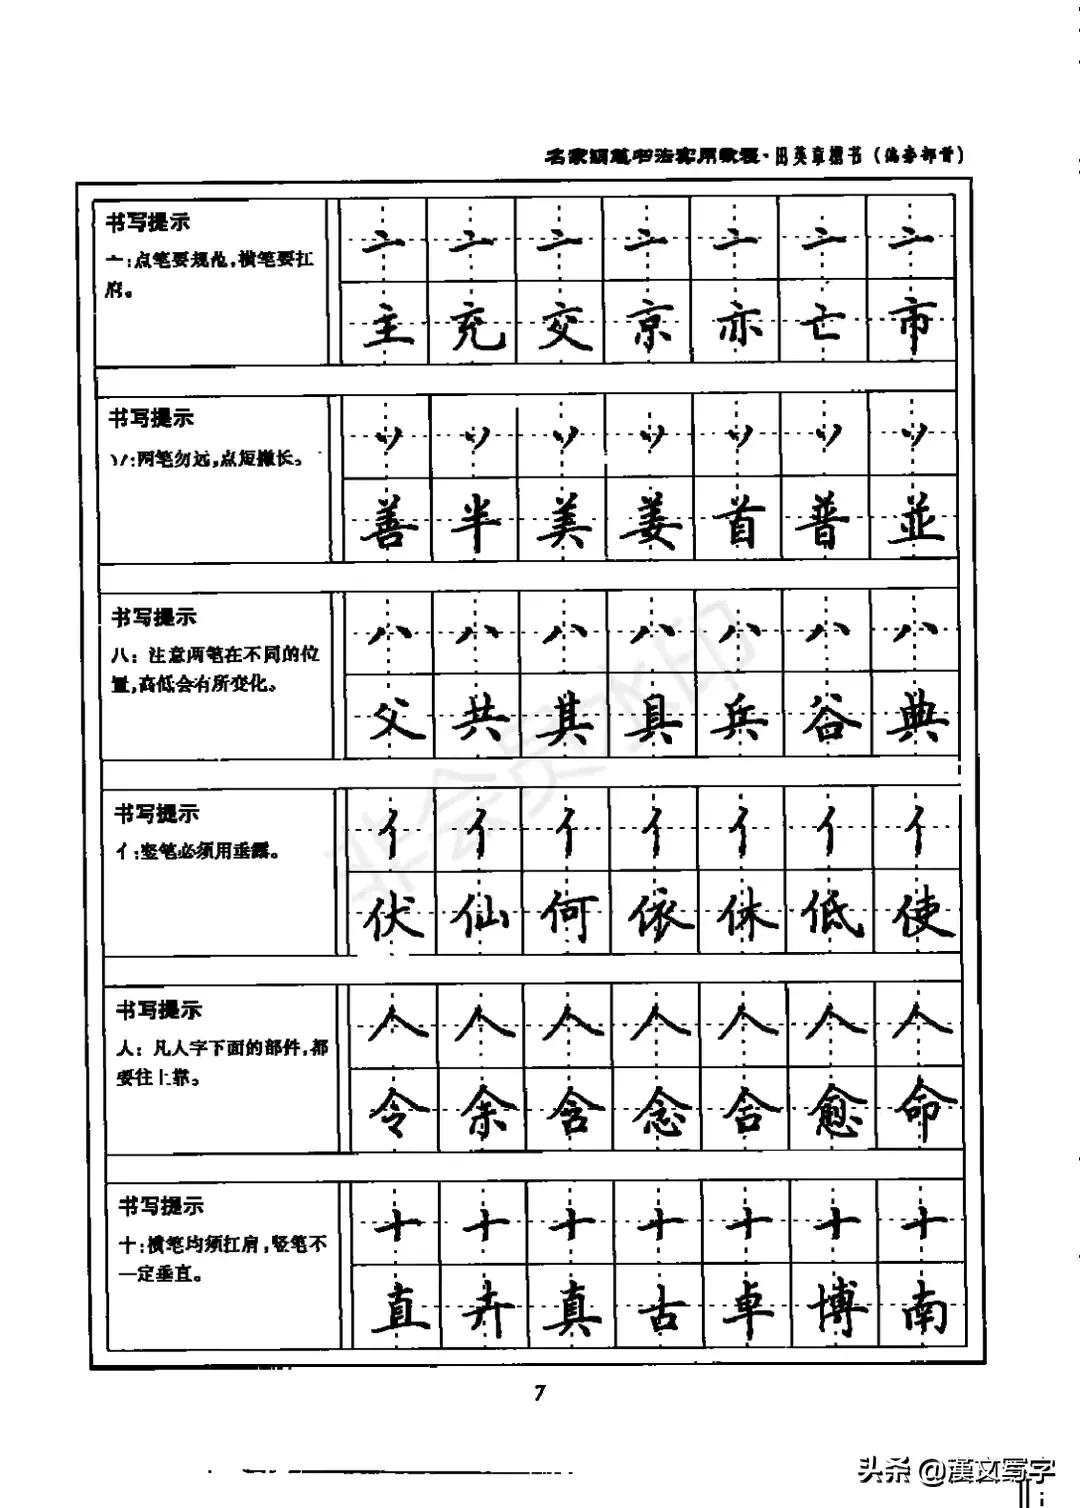 名家钢笔书法实用教程·田英章楷书（偏旁部首）
书写提示
亠:点笔要规范,横笔要扛
肩。
亠 亠 亠 亠 亠 亠 亠
主 充 交 京 亦 亡 市
书写提示
丷:两笔勿远,点短撇长。
丷 丷 丷 丷 丷 丷 丷
善 半 美 姜 首 普 並
书写提示
八: 注意两笔在不同的位
置,高低会有所变化。
八 八 八 八 八 八 八
父 共 其 具 兵 谷 典
书写提示
亻:竖笔必须用垂露。
亻 亻 亻 亻 亻 亻 亻
伏 仙 何 依 休 低 使
书写提示
人: 凡人字下面的部件,都
要往上靠。
人 人 人 人 人 人 人
令 余 含 念 合 愈 命
书写提示
十:横笔均须扛肩,竖笔不
一定垂直。
十 十 十 十 十 十 十
直 卉 真 古 卓 博 南
非会员水印
7
头条 @漢文寫字